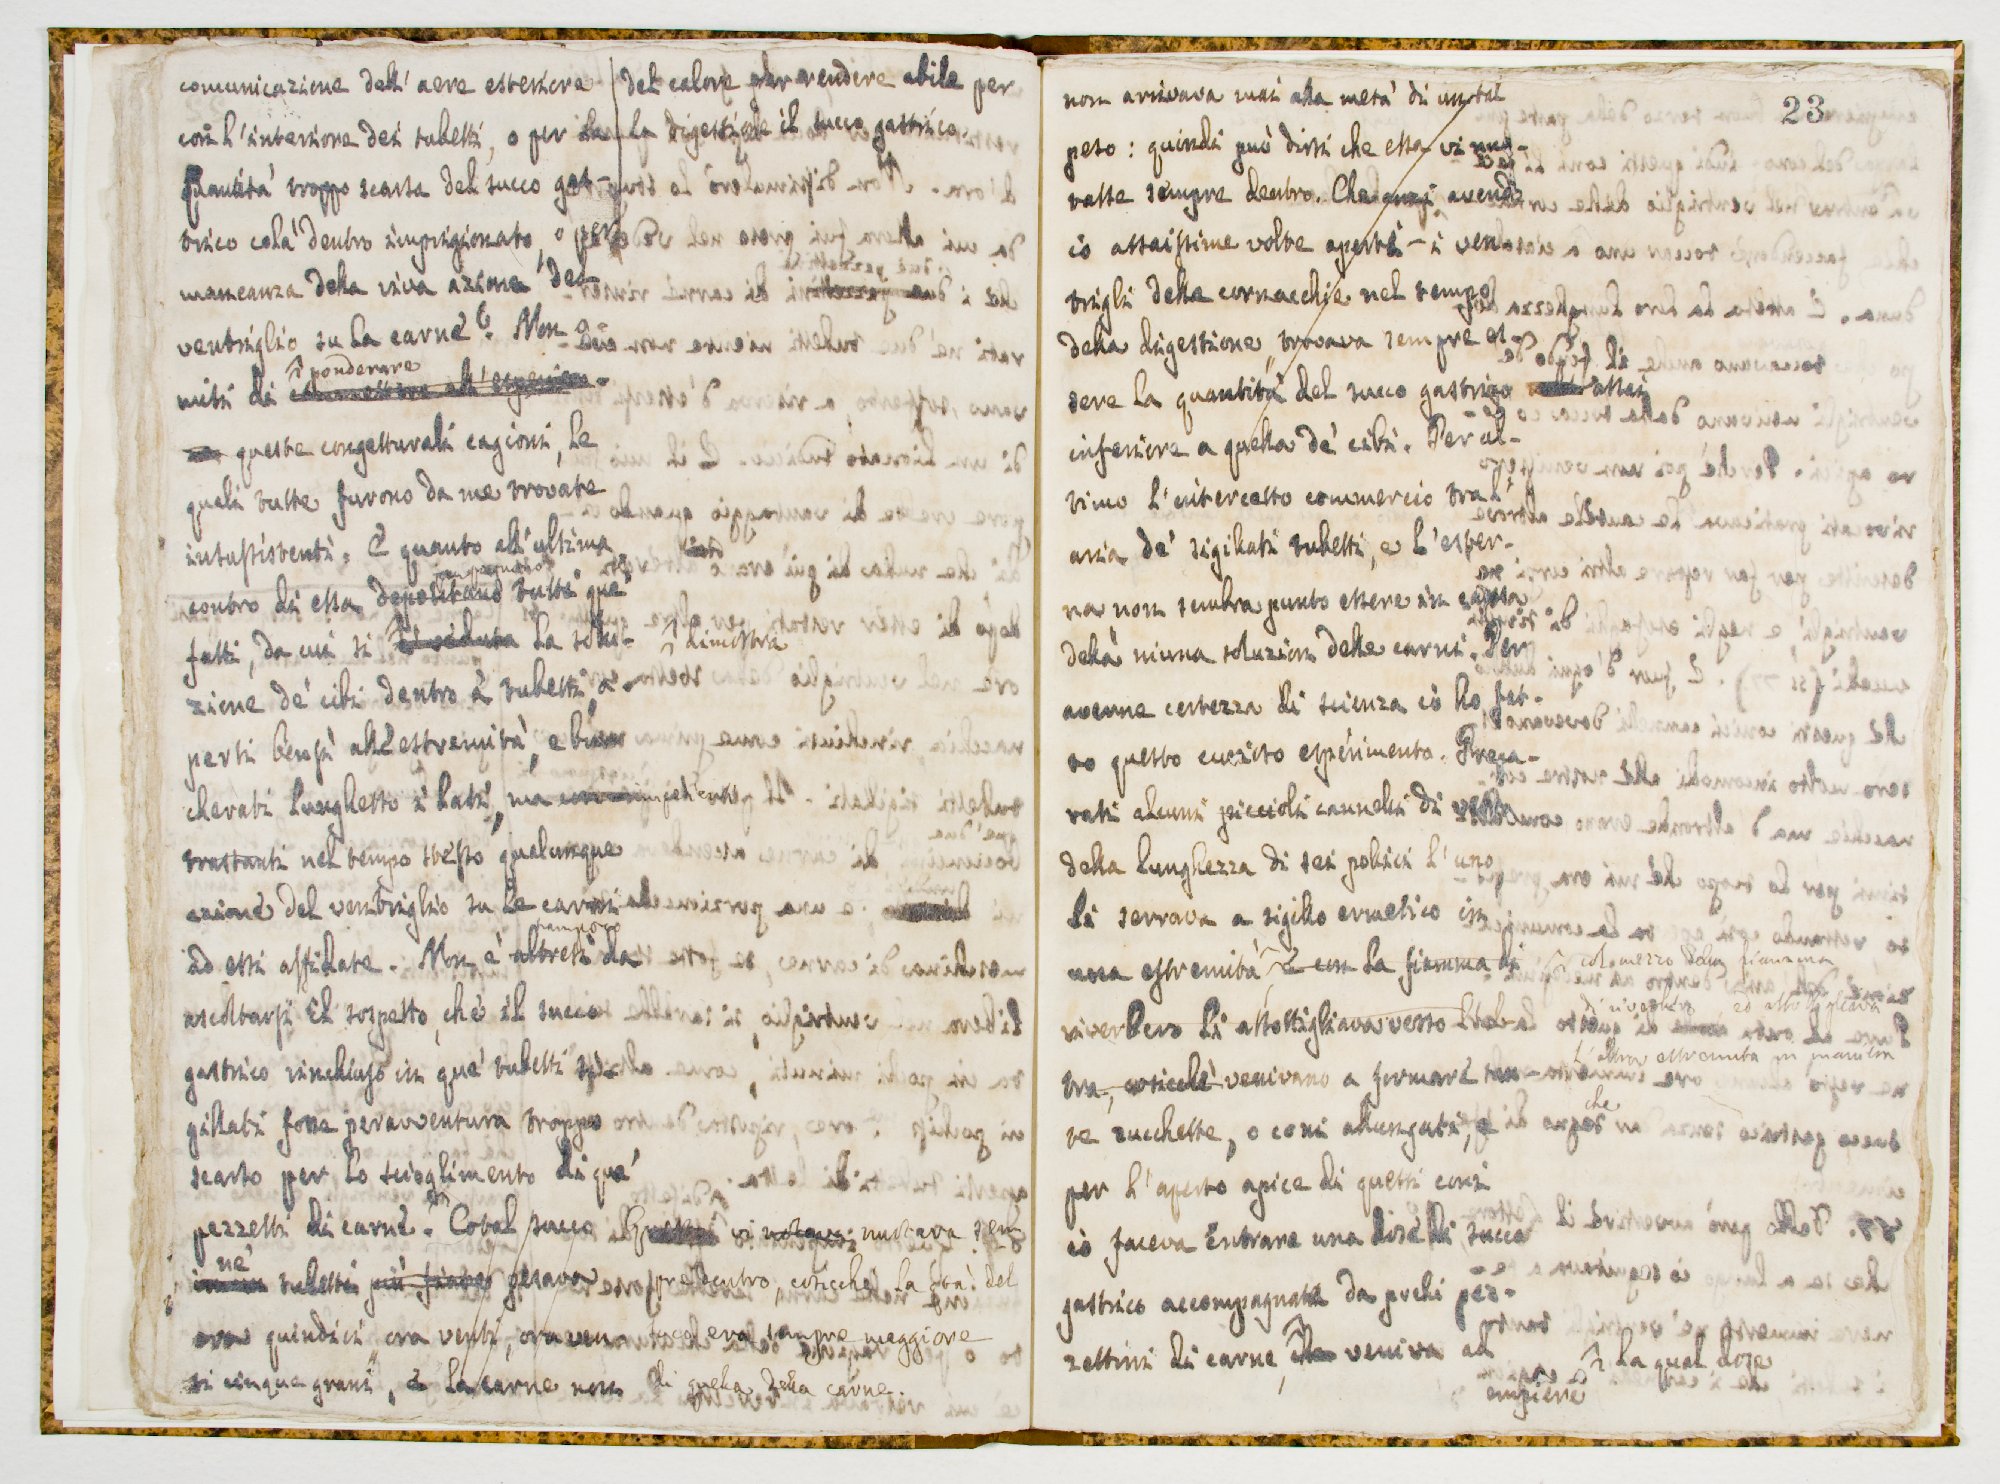 comunicazione dell' aere esteriore
con l'interiore dei tubetti, o per la
quantità troppo scarsa del succo gas-
trico colà dentro imprigionato, o per
mancanza della viva azione del
ventriglio su la carne? Non o-
misi di
ponderare
queste congetturali cagioni, le
quali tutte furono da me trovate
insussistenti. E quanto all'ultima
contro di essa depositano tutti que'
fatti, da cui si la solu-
dimostra
zione de' cibi dentro a' tubetti a-
perti bensì all'estremità, e bu-
cherati lunghesso i lati, ma
trastanti nel tempo stesso qualunque
azione del ventriglio su le carni
ad essi affidate. Non è altresì da
nampoco
ascoltarsi il sospetto, che il succo
gastrico rinchiuso in que' tubetti si-
gillati fosse peravventura troppo
scarso per lo scioglimento di que'
pezzetti di carne. Cotal succo
ne'
tubetti più pesava
ora quindici, ora venti, ora ven-
ti cinque grani, e la carne non
del calore per rendere abile per
la digestione il succo gastrico.
vi nuotava sem
pre dentro, cosicchè la del
succo era sempre maggiore
di quella della carne.
23
non arrivava mai alla metà di un tal
peso: quindi può dirsi che essa vi nuo-
tasse sempre dentro. Che anzi avendo
io assaissime volte aperti i ven-
trigli delle cornacchie nel tempo
della digestione, trovava sempre es-
sere la quantità del succo gastrico assai
inferiore a quella de' cibi. Per ul-
timo l'intercetto commercio tra l'
aria de' sigillati tubetti, e l'ester-
na non sembra punto essere in causa
della niuna soluzion delle carni. Per
averne certezza di scienza io ho fat-
to questo esperimento. Prepa-
rati alcuni piccioli cannelli di vetro
della lunghezza di sei pollici l'uno
li serrava a sigillo ermetico in
una estremità e con la fiamma di
col mezzo della fiamma
riverbero li assottigliava verso l'al-
di riverbero ed assottigliava
l'altra estremità in maniera
tra, cosicchè venivano a formare tan-
che
te zucchette, o coni allungati, e
per l'aperto apice di questi coni
io faceva entrare una dose di succo
gastrico accompagnata da pochi pez-
zettini di carne, veniva ad
la qual dose
empiere